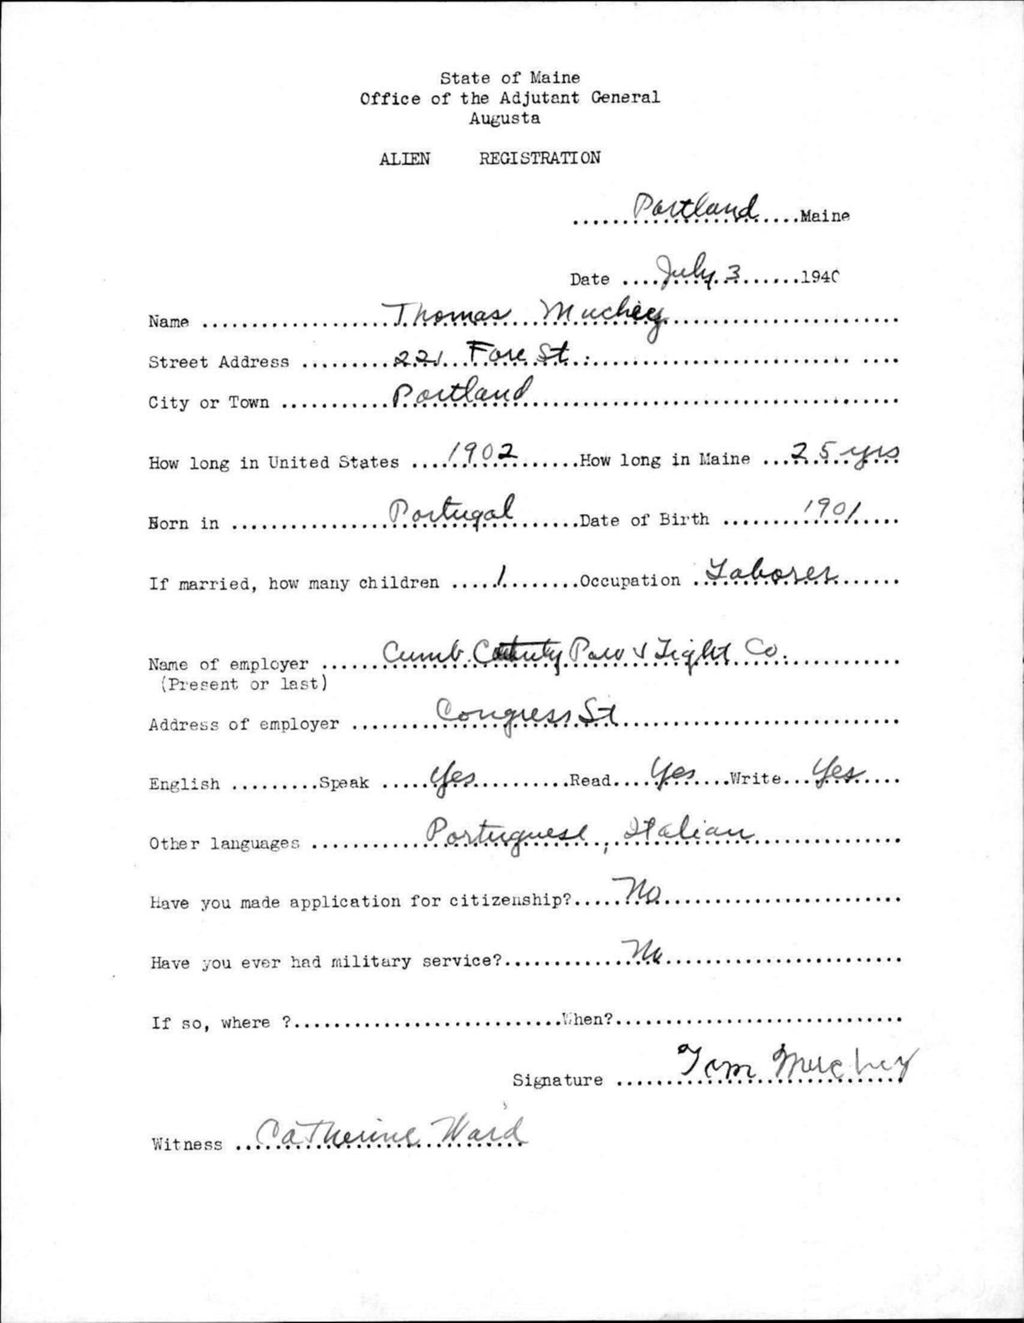 State of Maine
Office of the Adjutant General
Augusta
ALIEN REGISTRATION
......Portland....Maine
Date ....July 3......1940
Name ..................Thomas Muchey..........................
Street Address .........221 Fore St................... ....
City or Town ...........Portland...................................
How long in United States ....1902.......How long in Maine ...25 yrs
Born in ................Portugal.......Date of Birth .........1901....
If married, how many children .....1........Occupation .Laborer......
Name of employer ......Cumb. County Pow & Light Co.............
(Present or last)
Address of employer .........Congress St..............................
English .........Speak .....Yes..........Read....Yes....Write...Yes....
Other languages ............Portuguese, Italian..................
Have you made application for citizenship?.....No.........................
Have you ever had military service?............No.........................
If so, where ?..........................When?............................
Signature ......Tom Muchey
Witness ...Catherine Ward